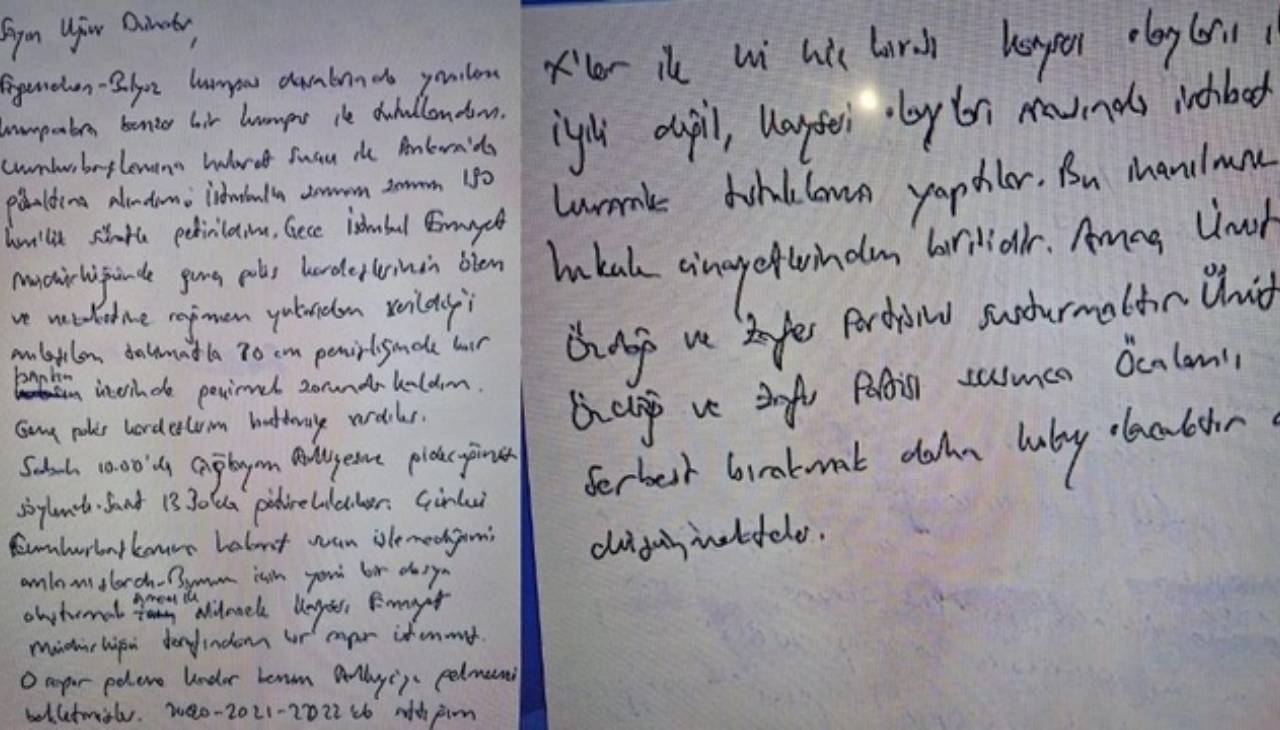 Sayın Uğur Dündar,
Ergenekon-Balyoz kumpas davalarında yapılan
kumpaslara benzer bir kumpas ile tutuklandım.
Cumhurbaşkanına hakaret suçu ile Ankara'da
gözaltına alındım. İstanbul'a zaman zaman 190
km'lik süratle getirildim. Gece İstanbul Emniyet
müdürlüğünde genç polis kardeşlerimin özen
ve nezaketine rağmen yukarıdan verildiği
anlaşılan talimatla 70 cm genişliğinde bir
bankın üzerinde geçirmek zorunda kaldım.
Genç polis kardeşlerim battaniye verdiler.
Sabah 10.00'da Çağlayan Adliyesine gideceğimiz
söylendi. Saat 13.30'da götürebildiler. Çünkü
Cumhurbaşkanına hakaret suçu işlemediğimi
anlamışlardı. Bunun için yeni bir dosya
oluşturmak amacı ile alelacele Kayseri Emniyet
Müdürlüğü tarafından bir rapor istenmiş.
O rapor gelene kadar benim Adliyeye gelmemi
bekletmişler. 2020-2021-2022'de attığım
X'ler ile ki hiç birisi Kayseri olayları ile
ilgili değil, Kayseri olayları arasında irtibat
kurarak tutuklama yaptılar. Bu inanılmaz
hukuk cinayetlerinden birisidir. Amaç Ümit
Özdağ ve Zafer Partisini susturmaktır. Ümit
Özdağ ve Zafer Partisi susunca Öcalan'ı
serbest bırakmak daha kolay olacaktır
düşünmekteler.